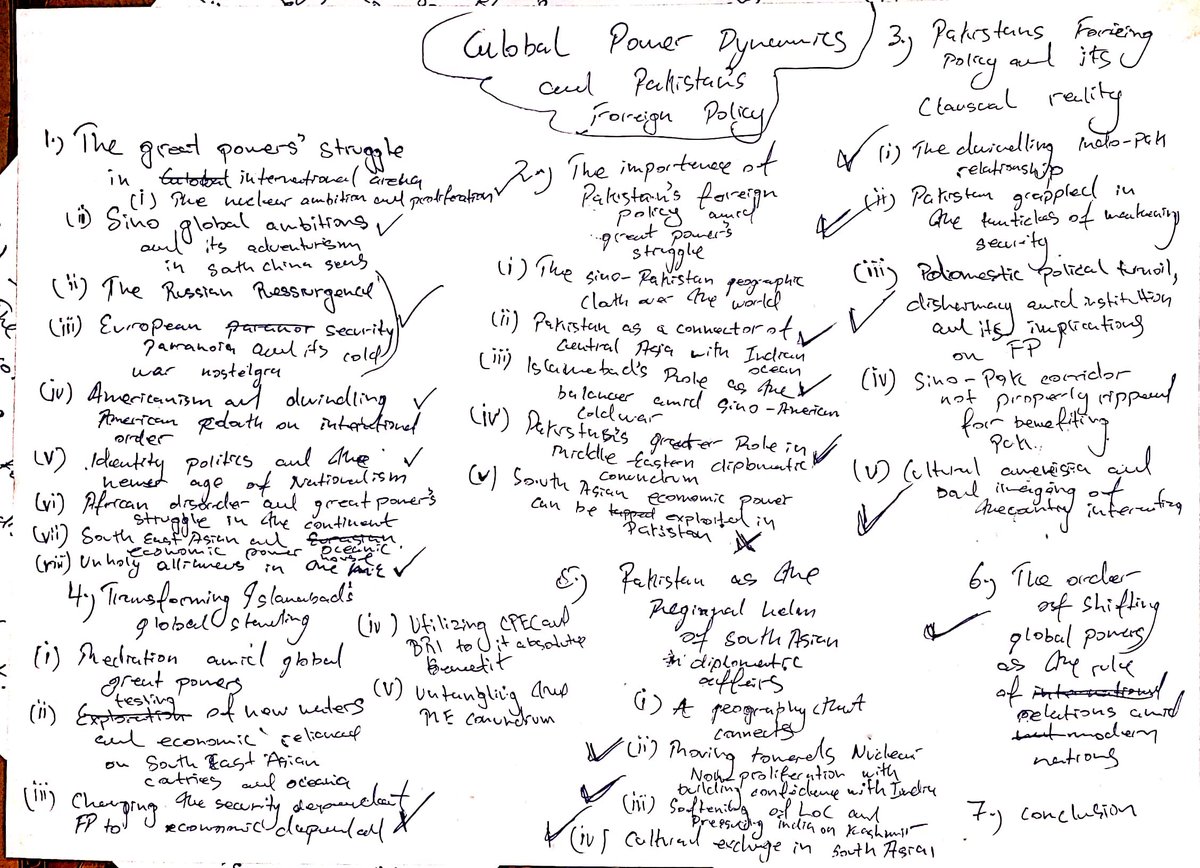 Gulobal Power Dynamics
and Pakistan's
Foreign Policy
1.) The great powers' struggle
in Gulobal international arena
(i) The nuclear ambition and proliferation
(ii) Sino global ambitions
and its adventurism
in south china seas
(ii) The Russian Ressurgence
(iii) European security
parranoia and its cold
war nostelgra
(iv) Americanism and dwindling
American on international
order
(v) Identity politics and the
newer age of Nationalism
(vi) African disorder and great power's
struggle in the continent
(vii) South East Asian and Eurasian oceanic
economic power house
(viii) Unholy alliances in the ME
2.) The importance of
Pakistan's foreign
policy amid
great power's
struggle
(i) The sino-Pakistan geographic
over the world
(ii) Pakistan as a connector of
Central Asia with Indian
ocean
(iii) Islamabad's Role as the
balancer amid Sino-American
coldwar
(iv) Pakistan's greater Role in
middle-Eastern diplomatic
conundrum
(v) South Asian economic power
can be tapped exploited in
Pakistan
3.) Pakistans Forieng
Policy and its
reality
(i) The dwinelling Indo-Pak
relationship
(ii) Pakistan grappled in
the of weakening
security
(iii) Domestic polical turmoil,
disharmony amid institution
and its implications
on FP
(iv) Sino-Pak corridor
not properly ripped
for benefiting
Pak.
(v) Cultural and
bad imaging of
the country
4.) Transforming Islamabad's
global standing
(i) Mediation amid global
great powers
(ii) Exploration testing of new waters
and economic reliance
on South East Asian
and oceania
(iii) Changing the security dependent
FP to economic dependent
(iv) Utilizing CPEC and
BRI to it absolute
benefit
(v) Untangling the
ME conundrum
5.) Pakistan as the
Regional helm
of South Asian
in diplomatic
affairs
(i) A geography that
connects
(ii) Moving towards Nuclear
Non-proliferation with
building confidence with India
(iii) Softening of LoC and
Pressuring india on Kashmir
(iv) Cultural exchnge in South Asia
6.) The order
of shifting
global powers
as the rule
of international
relations amid
modern
nations
7.) conclusion